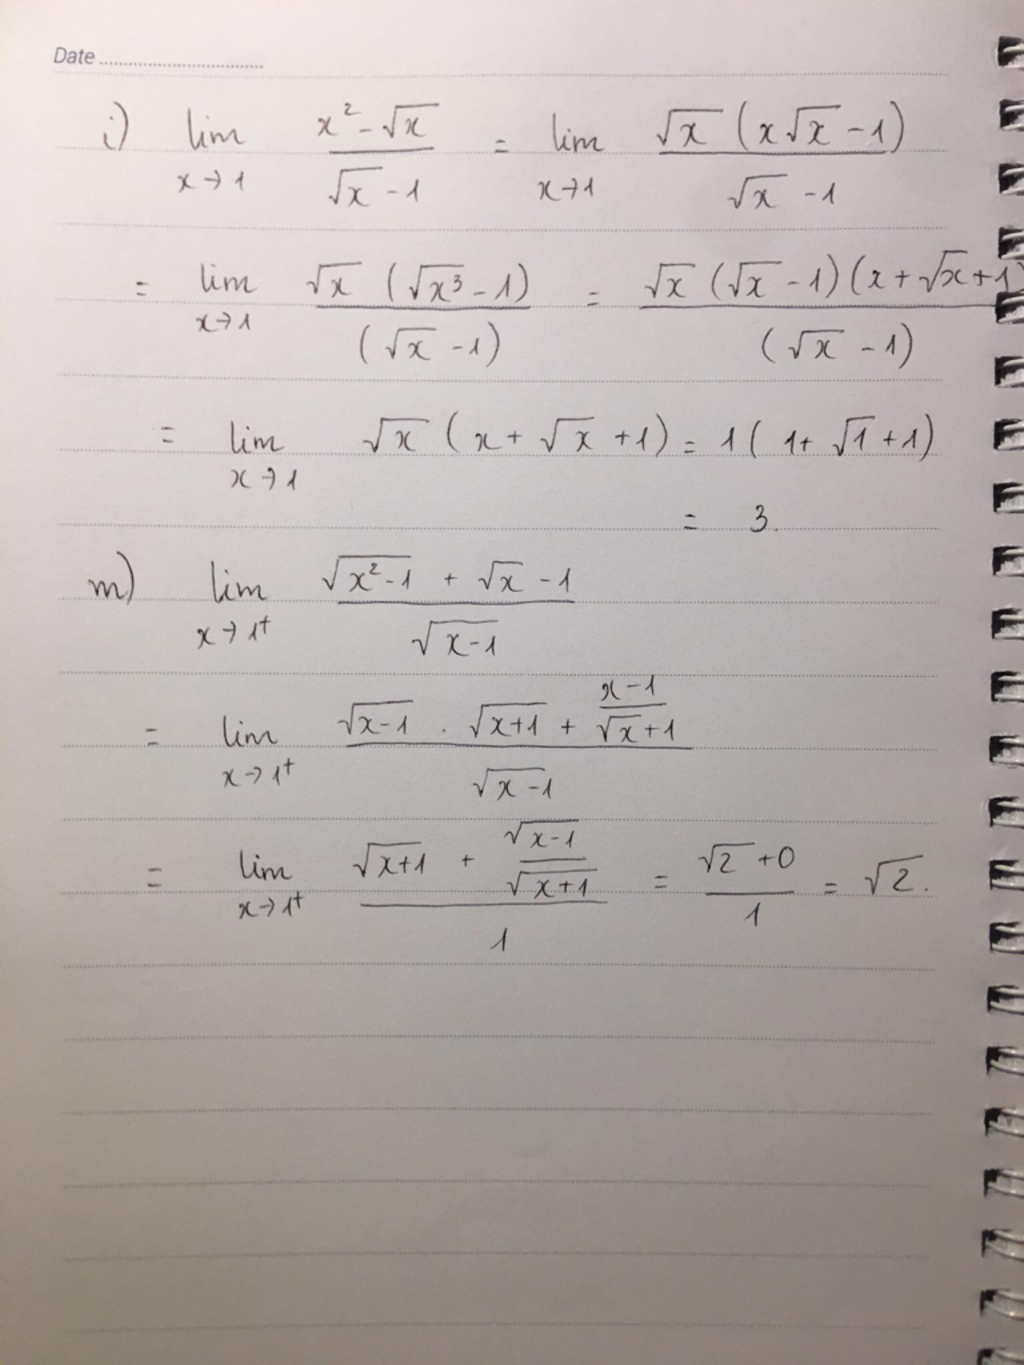 Date
i) lim x→1 (x² - √x)/(√x - 1) = lim x→1 √x (x√x - 1)/(√x - 1)
= lim x→1 √x (√x³ - 1)/(√x - 1) = √x (√x - 1)(x + √x + 1)/(√x - 1)
= lim x→1 √x (x + √x + 1) = 1(1 + √1 + 1)
= 3.
m) lim x→1⁺ (√(x²-1) + √x - 1)/√(x-1)
= lim x→1⁺ (√(x-1) . √(x+1) + (x-1)/(√x+1))/√(x-1)
= lim x→1⁺ (√(x+1) + √(x-1)/√(x+1))/1 = (√2 + 0)/1 = √2.